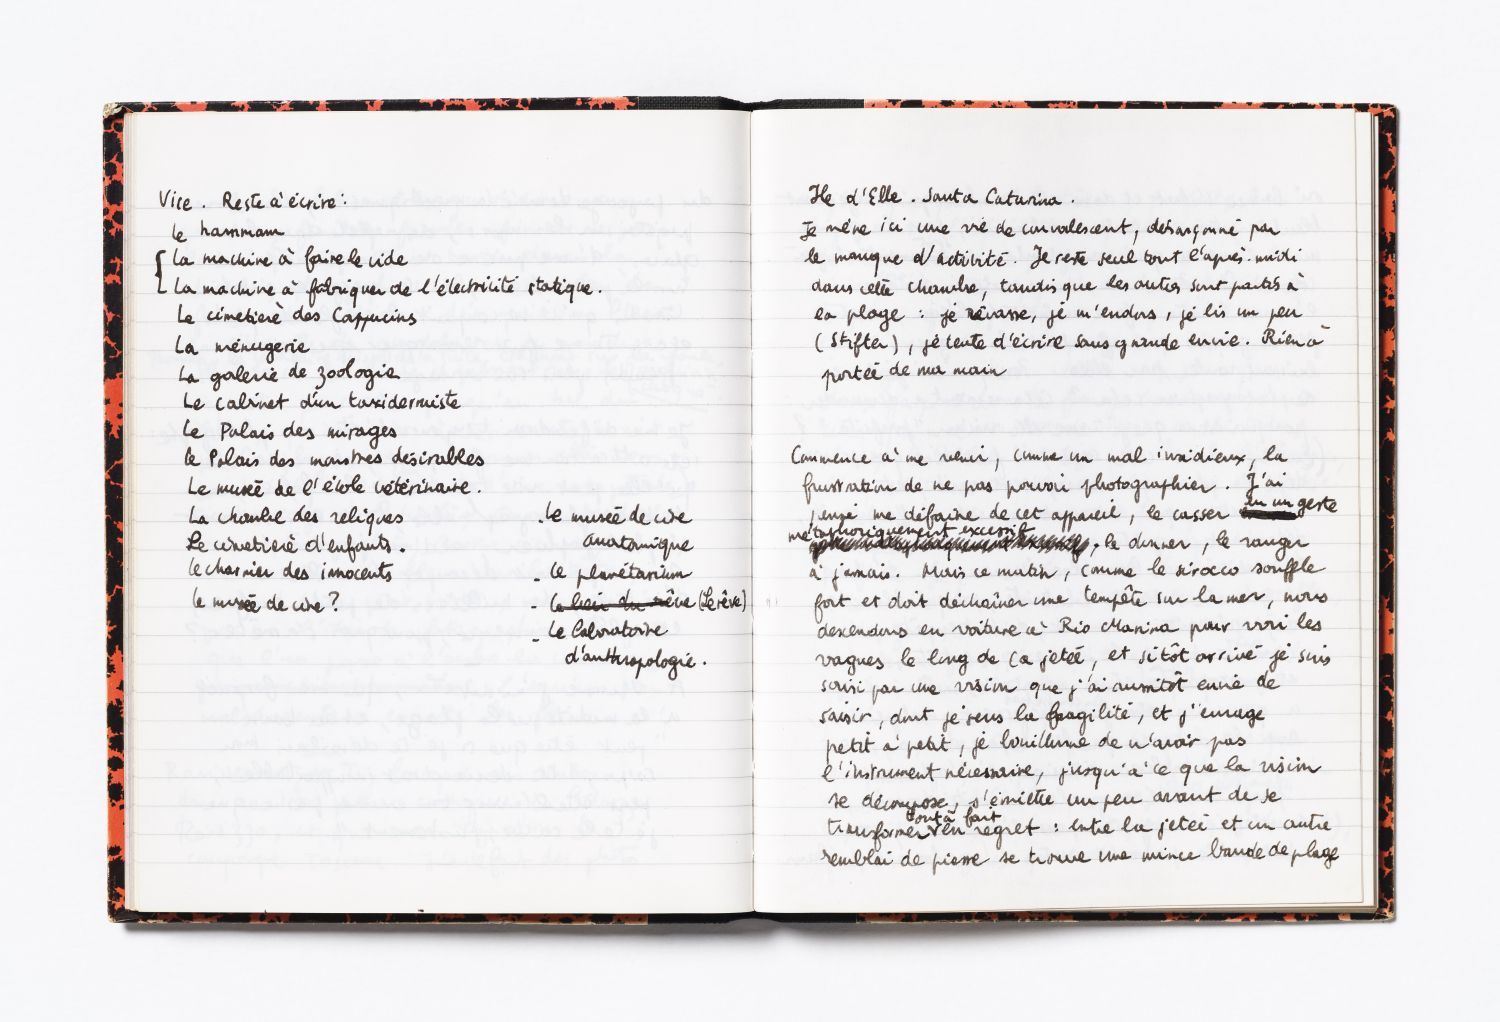 Vice. Reste à écrire :
le hammam
La machine à faire le vide
La machine à fabriquer de l'électricité statique.
Le cimetière des Cappucins
La ménagerie
La galerie de zoologie
Le cabinet d'un taxidermiste
Le Palais des mirages
Le Palais des monstres désirables
Le musée de l'école vétérinaire.
La chambre des reliques
Le cimetière d'enfants.
le charnier des innocents
le musée de cire ?
. le musée de cire
anatomique
- le planétarium
- le lieu du rêve (Le rêve)
- Le Laboratoire
d'anthropologie.
Ile d'Elbe. Santa Caturina.
Je mène ici une vie de convalescent, désarçonné par
le manque d'activité. Je reste seul tout l'après-midi
dans cette chambre, tandis que les autres sont partis à
la plage : je rêvasse, je m'endors, je lis un peu
(Stifter), je tente d'écrire sans grande envie. Rien à
portée de ma main
Commence à me venir, comme un mal insidieux, la
frustration de ne pas pouvoir photographier. J'ai
pensé me défaire de cet appareil, le casser en un geste
métaphoriquement excessif, le donner, le ranger
à jamais. Mais ce matin, comme le sirocco souffle
fort et doit déchaîner une tempête sur la mer, nous
descendons en voiture à Rio Marina pour voir les
vagues le long de la jetée, et sitôt arrivé je suis
saisi par une vision que j'ai aussitôt envie de
saisir, dont je sens la fragilité, et j'enrage
petit à petit, je bouillonne de n'avoir pas
l'instrument nécessaire, jusqu'à ce que la vision
se décompose, s'émiette un peu avant de se
transformer tout à fait en regret : entre la jetée et un autre
remblai de pierre se trouve une mince bande de plage